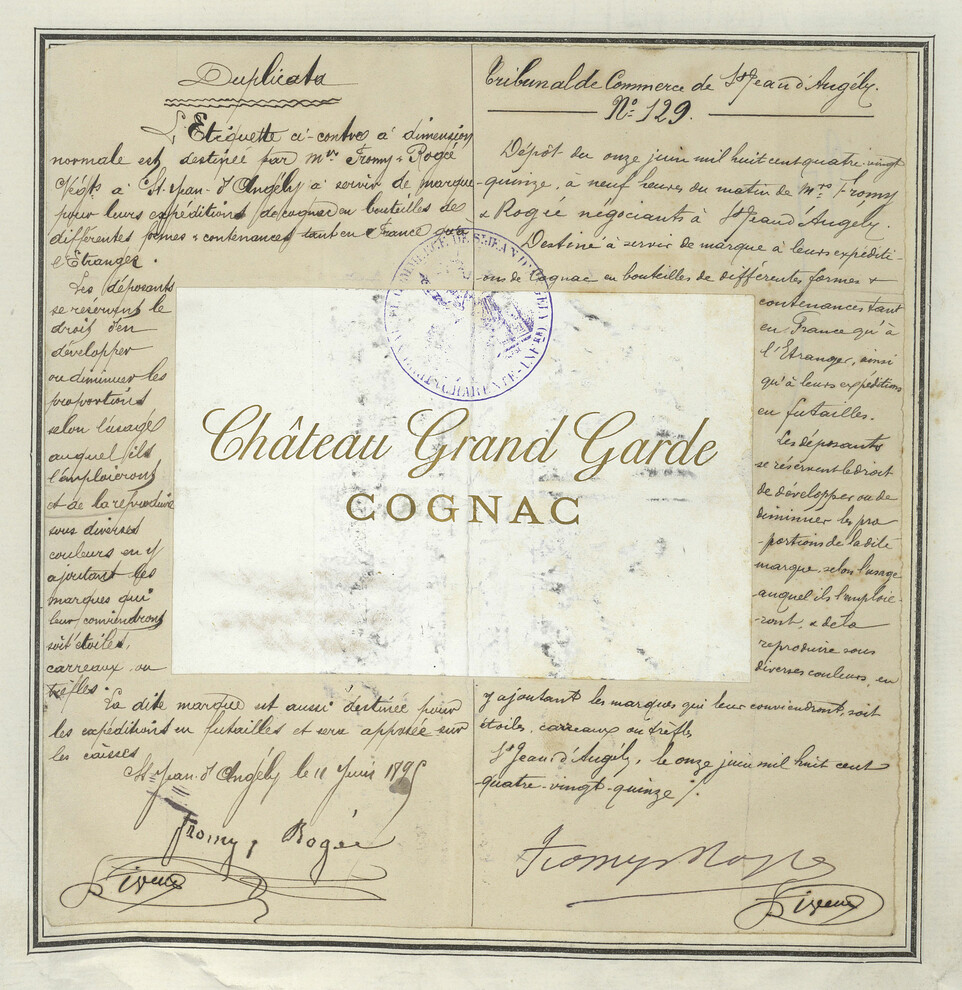 Duplicata
L'Etiquette ci-contre à dimension
normale est destinée par Mrs Fromy & Rogée
Négts à St-Jean-d'Angély à servir de marque
pour leurs expéditions de cognac en bouteilles de
différentes formes & contenances tant en France qu'à
l'Etranger.
Les déposants
se réservent le
droit d'en
développer
ou diminuer les
proportions
selon l'usage
auquel ils
l'emploieront
et de la reproduire
sous diverses
couleurs en y
ajoutant les
marques qui
leur conviendront
soit étoiles,
carreaux ou
trèfles.
La dite marque est aussi destinée pour
les expéditions en futailles et sera apposée sur
les caisses
St-Jean-d'Angély le 11 Juin 1895
Fromy, Rogée
Tribunal de Commerce de St Jean d'Angély.
No 129.
Dépôt du onze juin mil huit cent quatre-vingt
quinze, à neuf heures du matin de Mrs Fromy
& Rogée négociants à St Jean d'Angély.
Destiné à servir de marque à leurs expéditi-
ons de Cognac en bouteilles de différentes formes &
contenances tant
en France qu'à
l'Etranger, ainsi
qu'à leurs expéditions
en futailles.
Les déposants
se réservent le droit
de développer ou de
diminuer les pro
-portions de la dite
marque, selon l'usage
auquel ils l'emploie-
-ront, & de la
reproduire sous
diverses couleurs, en
y ajoutant les marques qui leur conviendront, soit
étoiles, carreaux ou trèfles
St Jean d'Angély, le onze juin mil huit cent
quatre-vingt-quinze
Fromy Rogée
Château Grand Garde
COGNAC